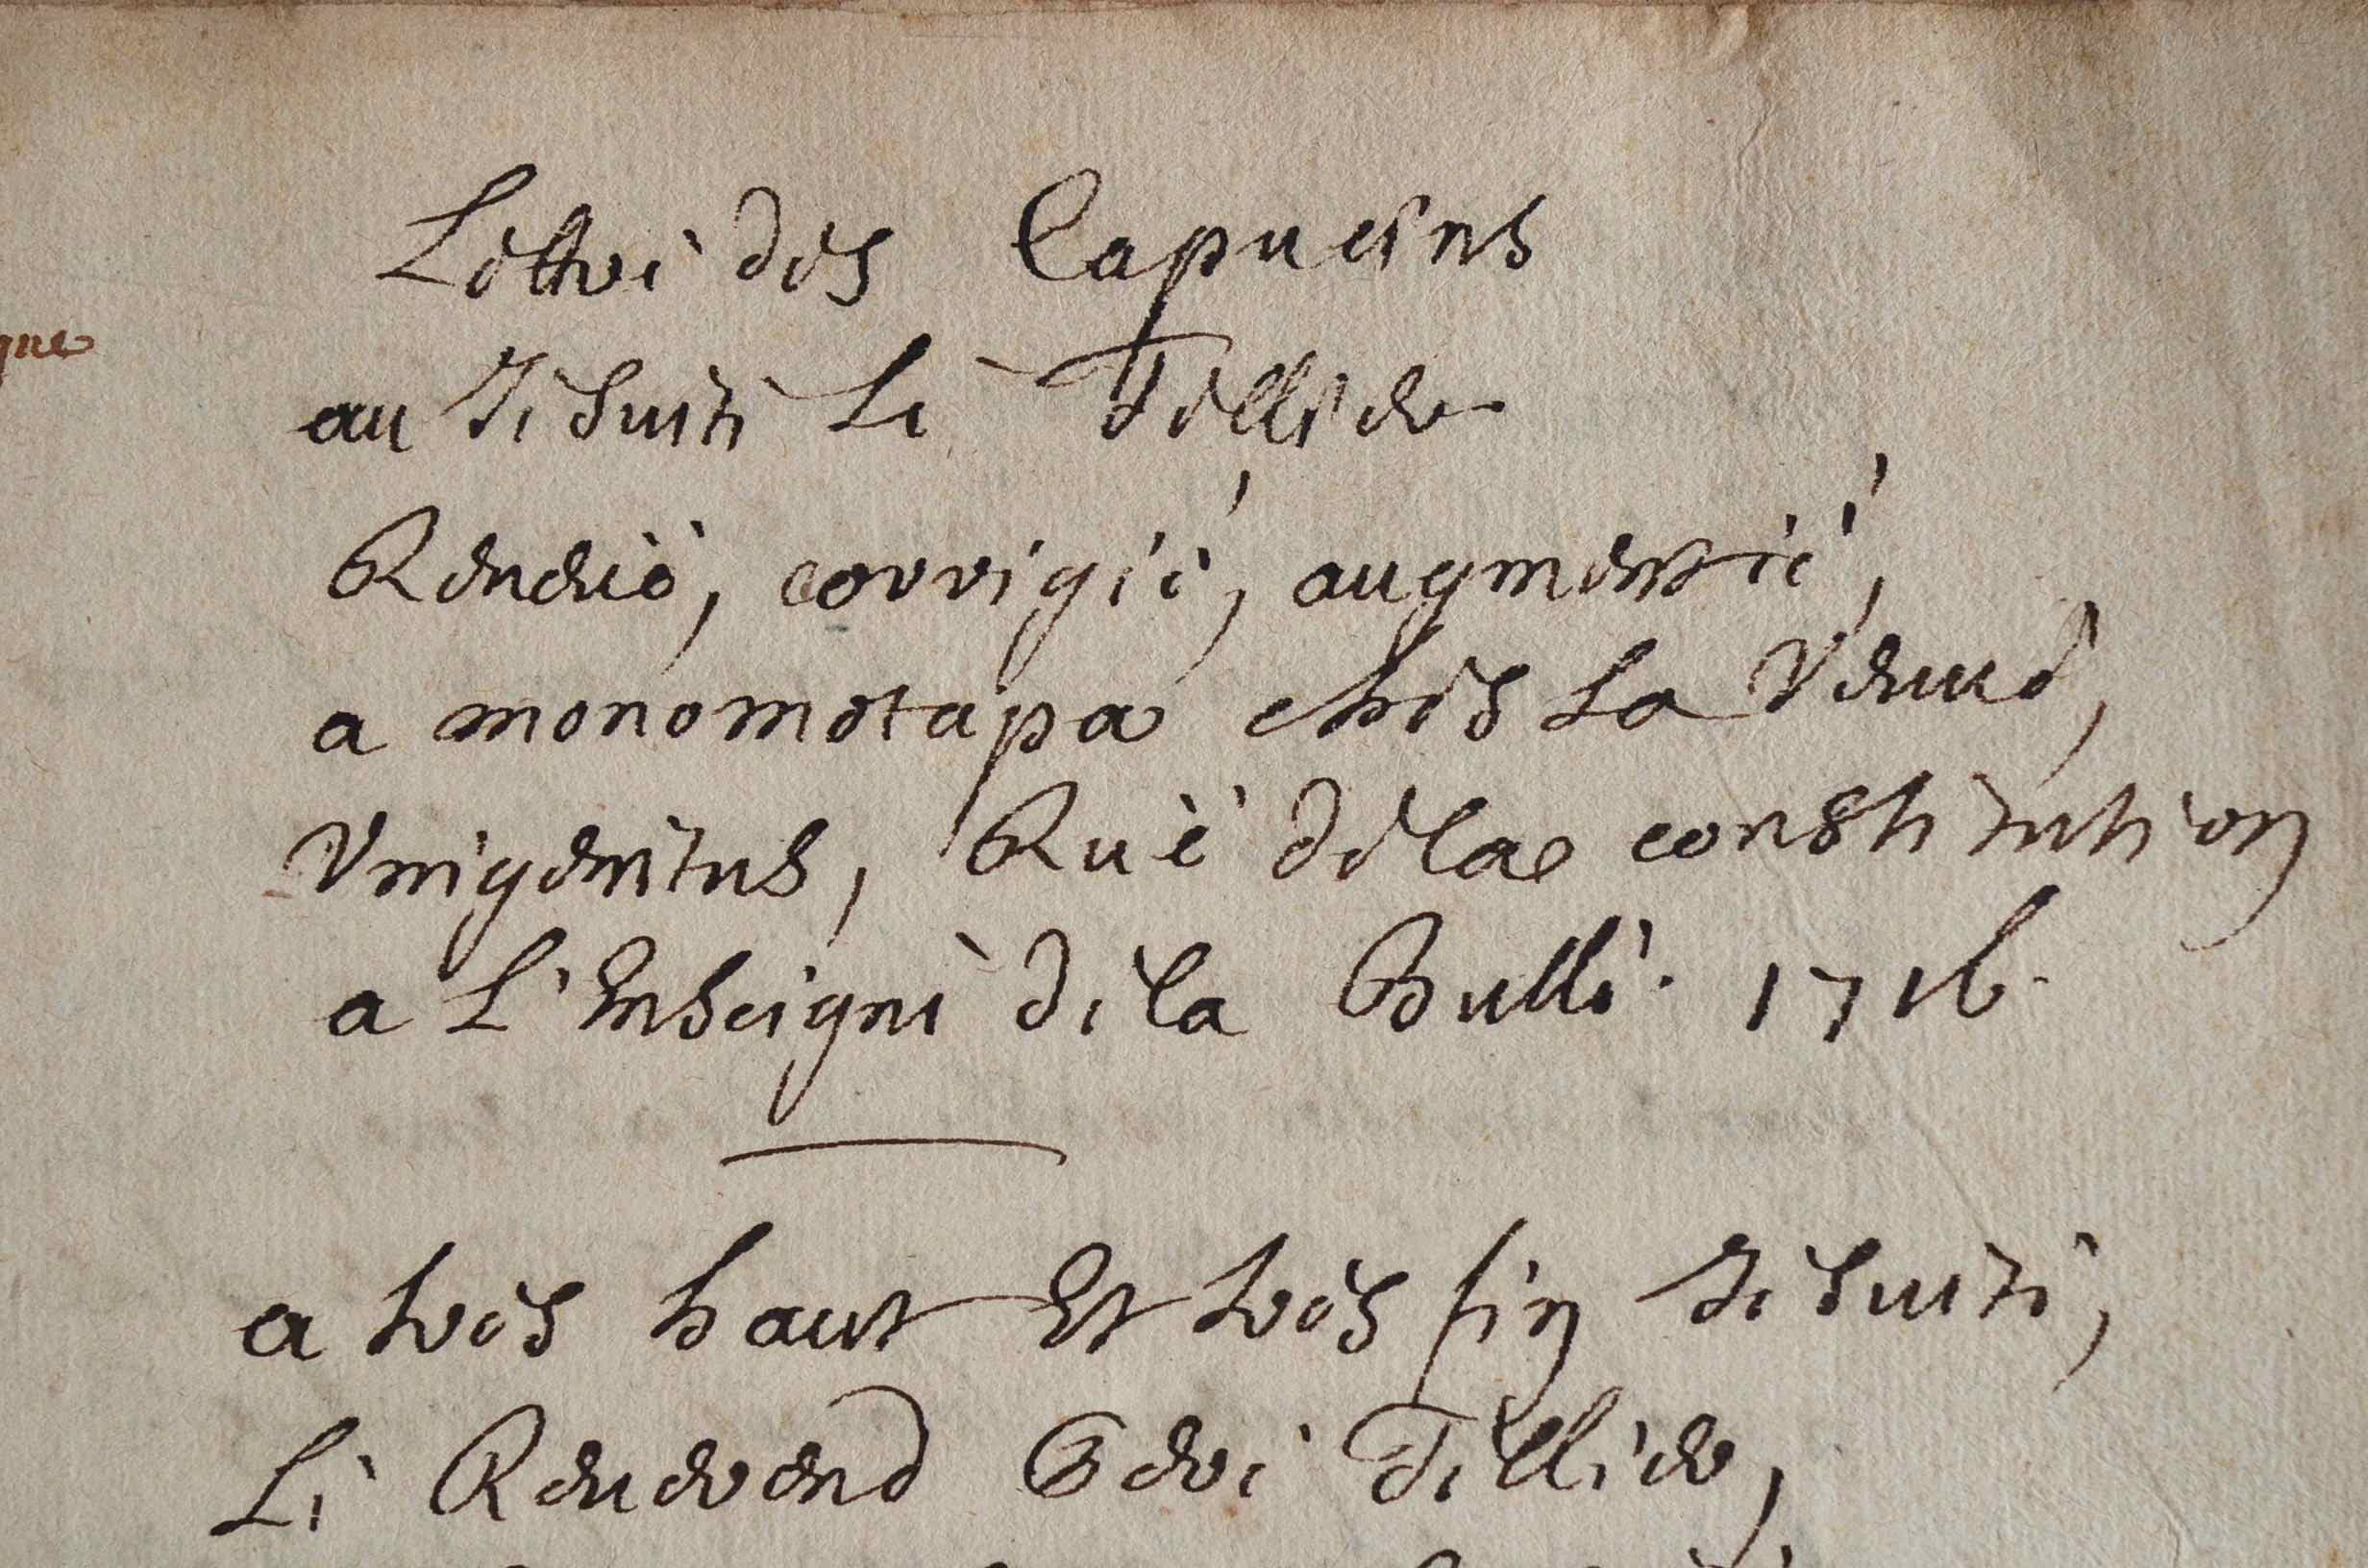 que
Lettre des Capucins
au Jesuite Le Tellier
Reveüe, corrigée, augmentée,
a monomotapa chés La Veuve,
Vnigenitus, Rue de la constitution
a L'Enseigne de la Bulle. 1716.
a tres haut Et tres fin Jesuite,
Le Reverend Pere Tellier,